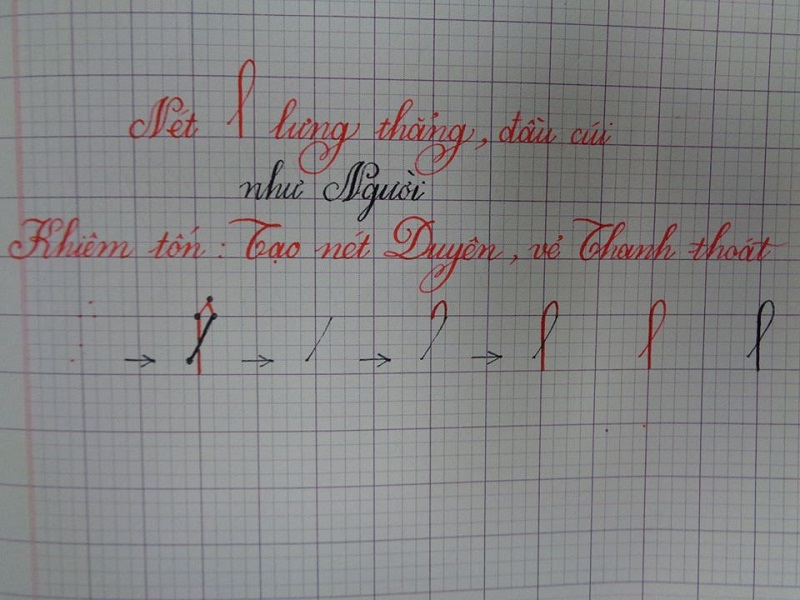 Nét l lưng thẳng, đầu cúi
như Người
Khiêm tốn: Tạo nét Duyên, vẻ Thanh thoát